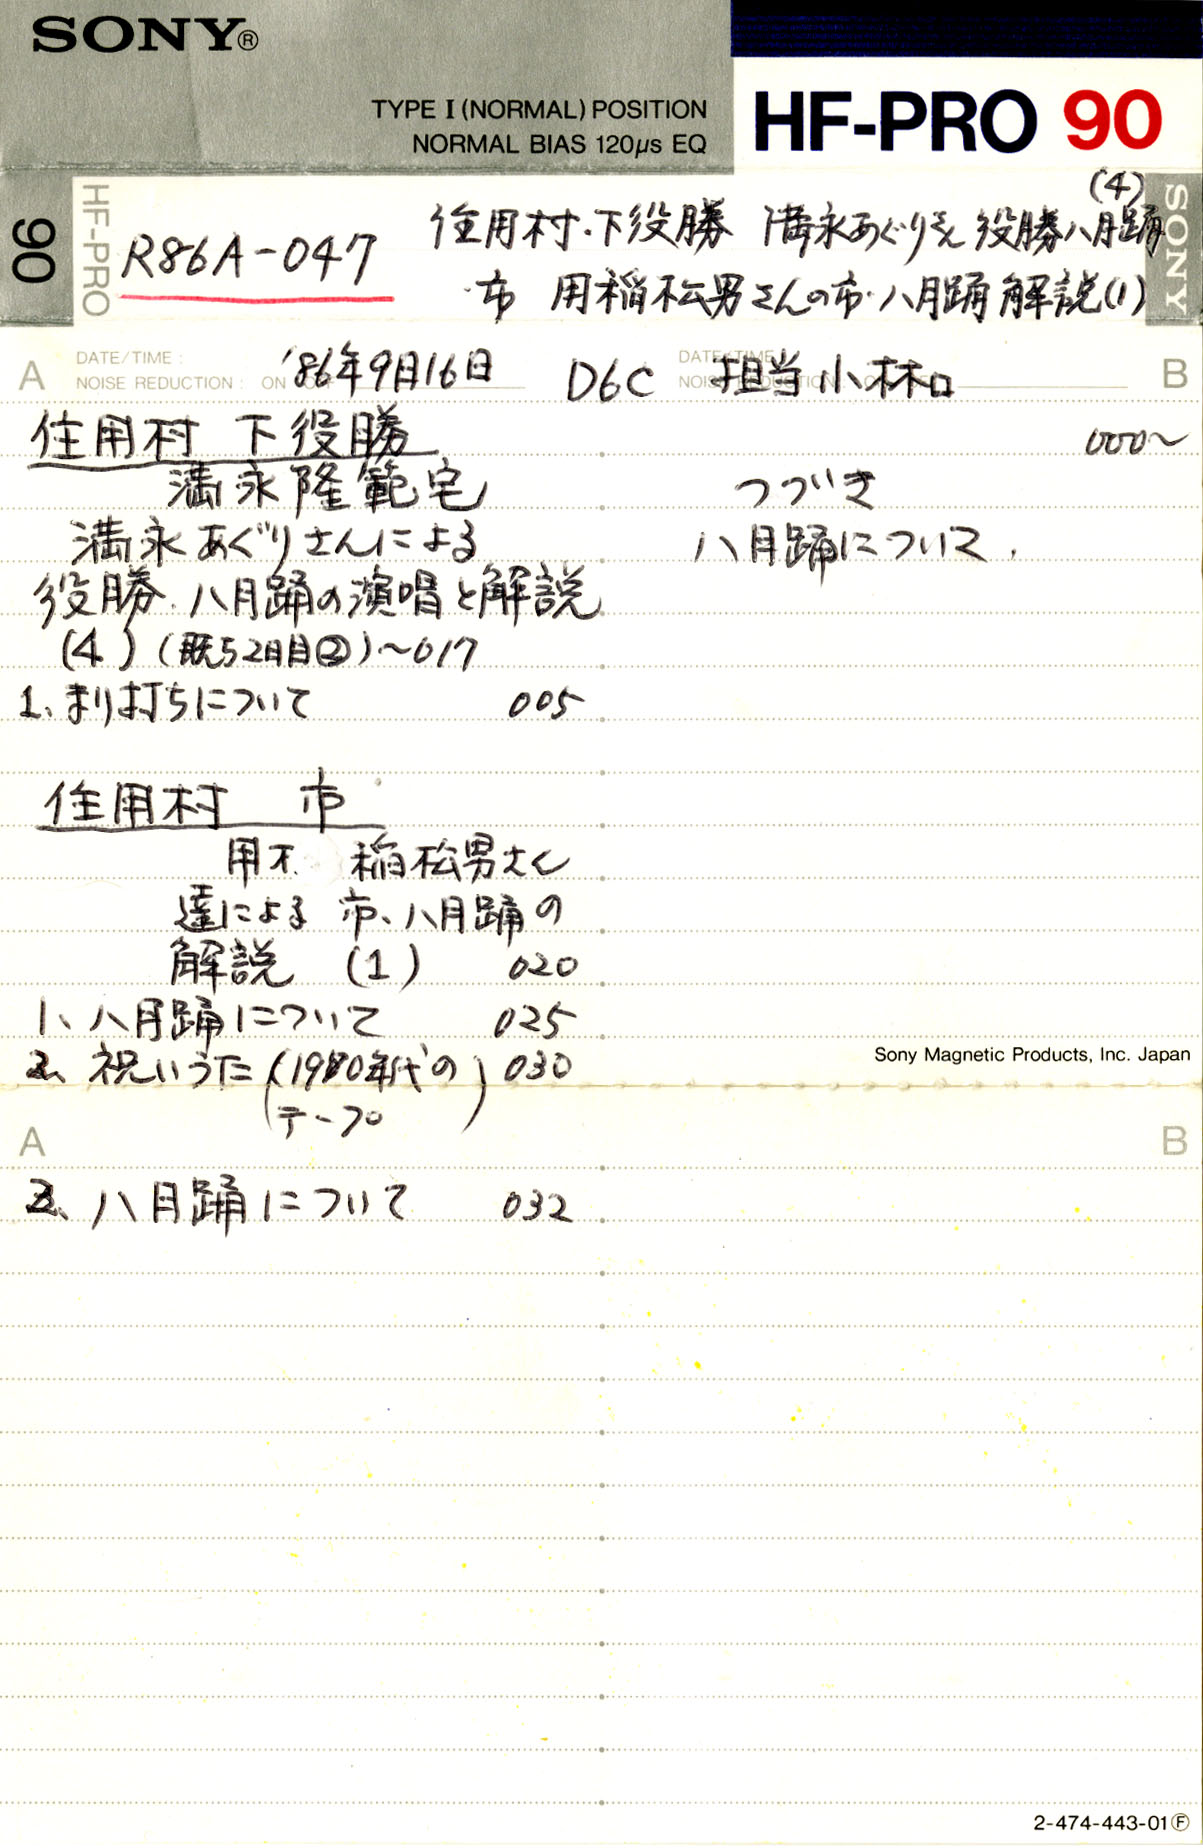 SONY®
TYPE I (NORMAL) POSITION
NORMAL BIAS 120μs EQ
HF-PRO 90
90
HF-PRO
R86A-047
(4)
住用村・下役勝 満永あぐりさん 役勝八月踊
市 用稲松男さんの市・八月踊解説(1)
SONY
A
DATE/TIME :
NOISE REDUCTION : ON
'86年9月16日 D6C 担当小林
DATE/TIME
NOISE REDUCTION
B
住用村 下役勝
満永隆範宅
満永あぐりさんによる
役勝.八月踊の演唱と解説
(4) ( 2日目②)〜017
1、まり打ちについて 005
住用村 市
用 稲松男さん
達による 市、八月踊の
解説 (1) 020
1、八月踊について 025
2、祝いうた(1980年代の 030
テープ)
A
2、八月踊について 032
000〜
つづき
八月踊について.
Sony Magnetic Products, Inc. Japan
B
2-474-443-01Ⓕ